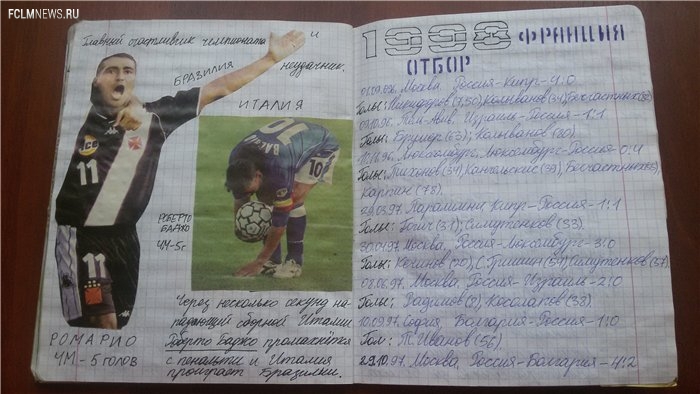 FCLMNEWS.RU
Главный счастливчик чемпионата и
неудачник.
БРАЗИЛИЯ
ИТАЛИЯ
11
11
BAGGIO
10
10
РОБЕРТО
БАДЖО
ЧМ-5г
РОМАРИО
ЧМ - 5 ГОЛОВ
Через несколько секунд на-
падающий сборной Италии
Роберто Баджо промахнётся
с пенальти и Италия
проиграет Бразилии.
1998 ФРАНЦИЯ
ОТБОР
01.09.96. Москва. Россия-Кипр-4:0
Голы: Никифоров (7,50), Колыванов (31), Бесчастных
09.10.96. Тель-Авив. Израиль-Россия-1:1
Голы: Брумер (63); Колыванов (80)
Люксембург. Люксембург-Россия-0:4
Голы: Тихонов (34), Канчельскис (39), Бесчастных
Карпин (78)
29.03.97. Паралимни Кипр-Россия-1:1
Голы: Гогич (31); Симутенков (33).
30.04.97. Москва. Россия-Люксембург-3:0
Голы: Кечинов (20), С.Гришин (57), Симутенков (57).
08.06.97. Москва. Россия-Израиль-2:0
Голы: Радимов (9), Косолапов (38)
10.09.97. София. Болгария-Россия-1:0
Гол: Т.Иванов (56).
29.10.97. Москва. Россия-Болгария-4:2